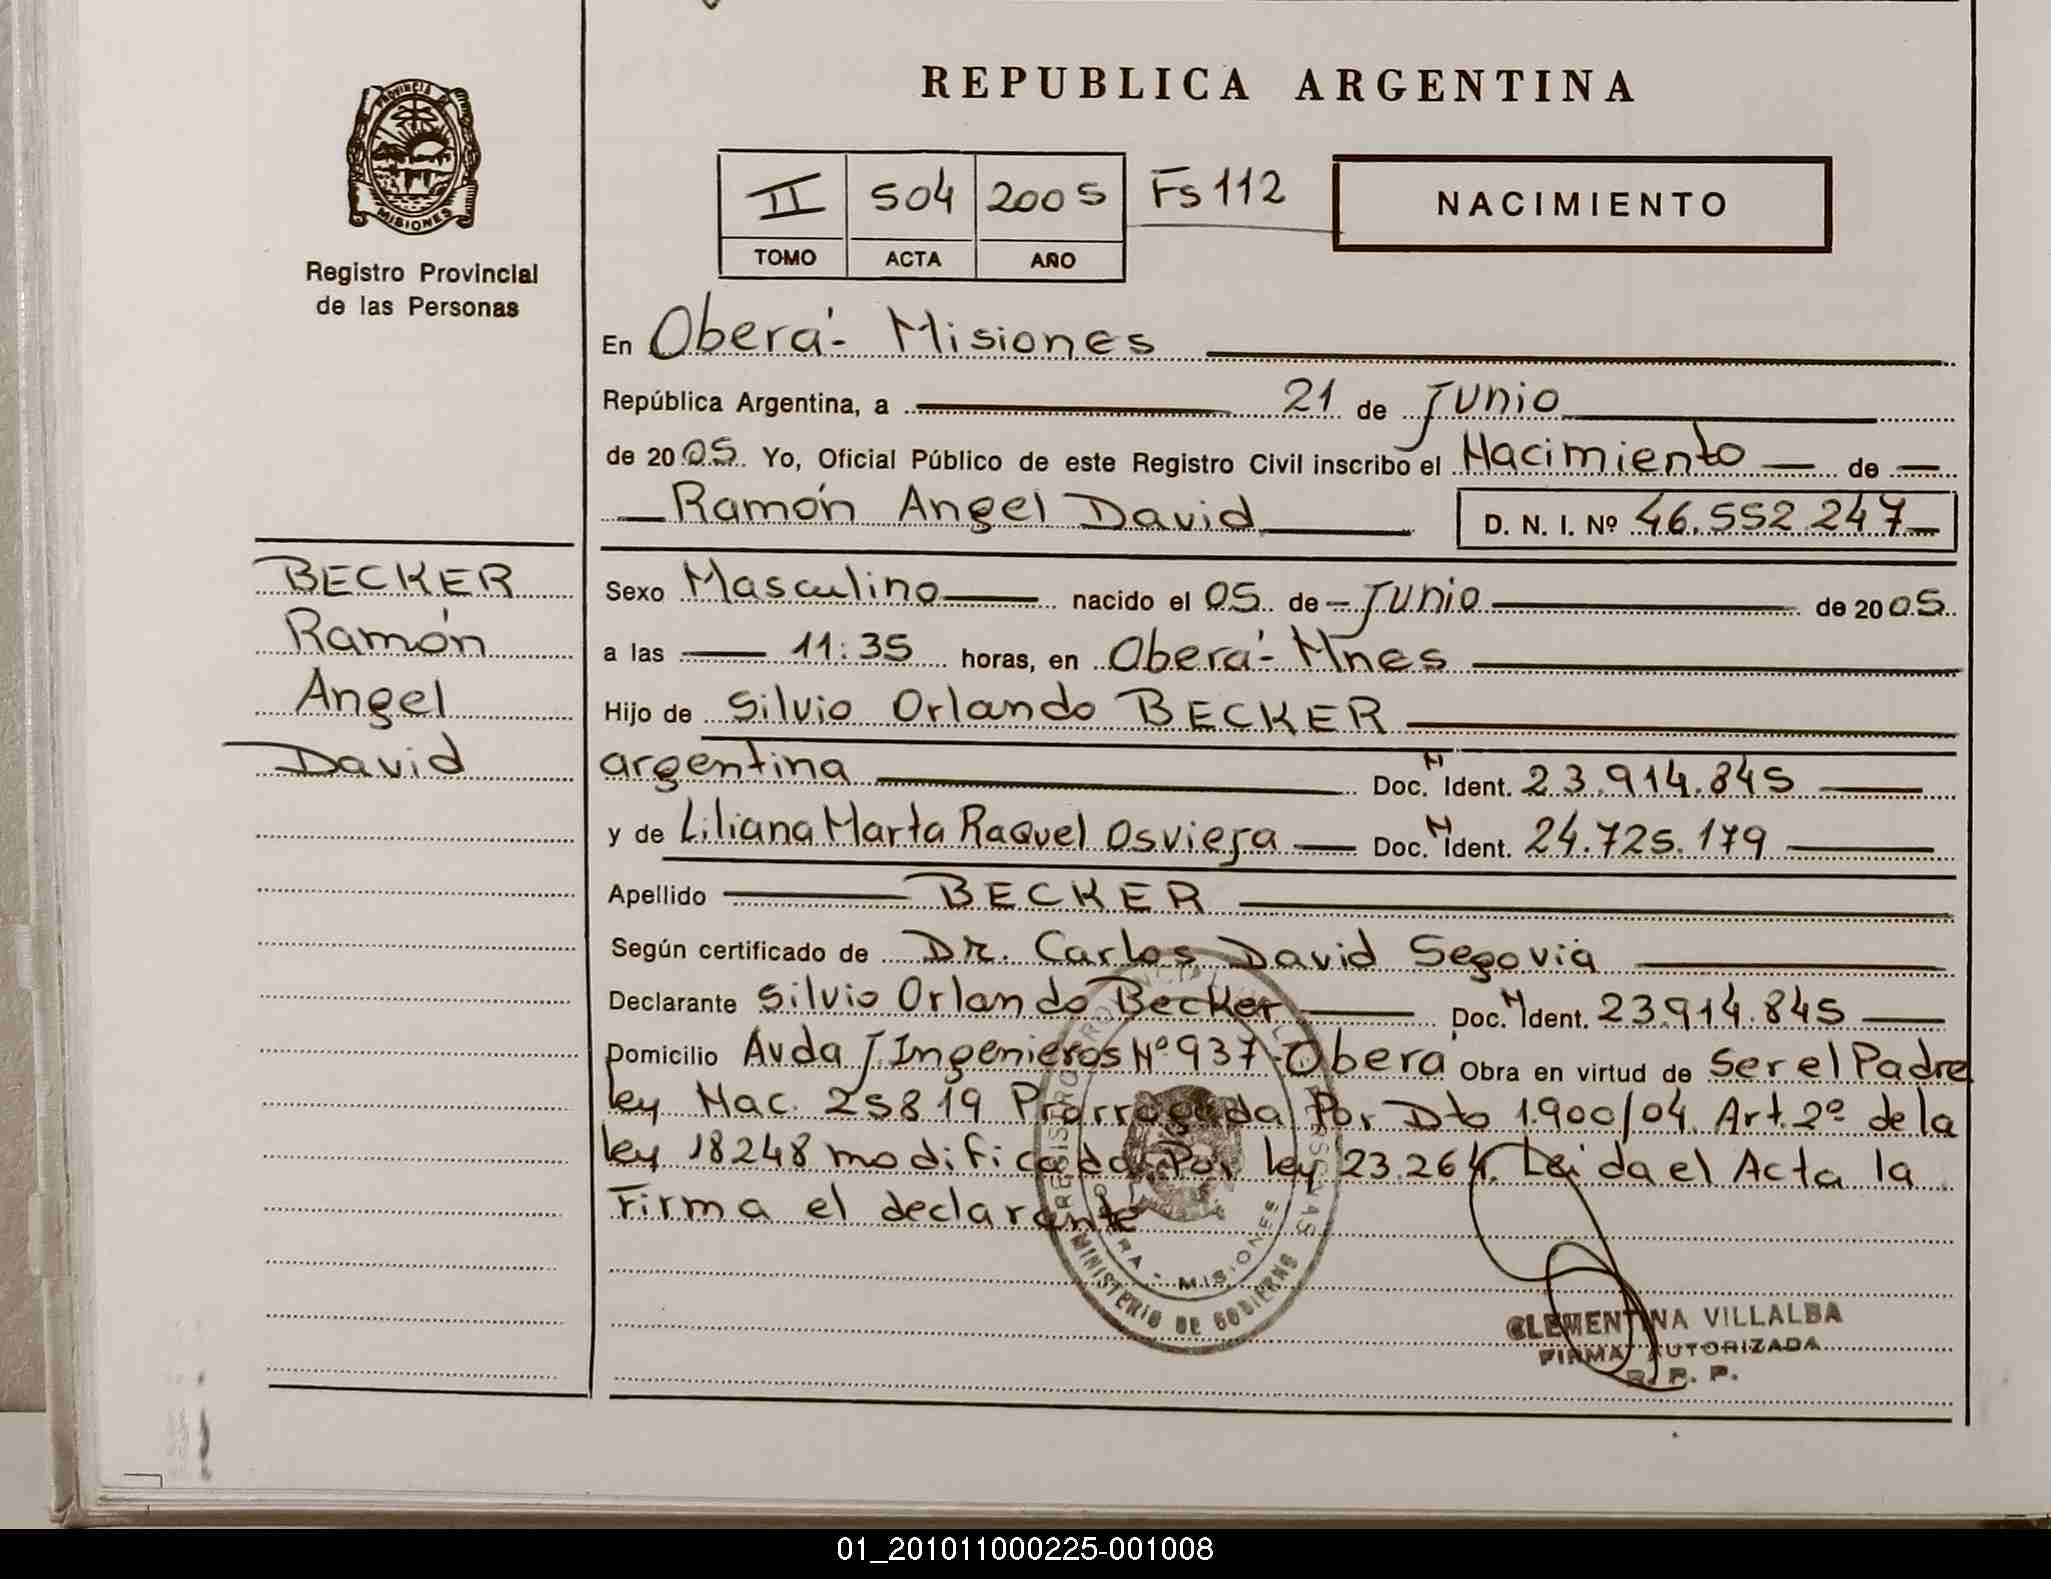 REPUBLICA ARGENTINA
PROVINCIA DE
MISIONES
Registro Provincial
de las Personas
II 504 2005 Fs 112
TOMO ACTA AÑO
NACIMIENTO
En Oberá - Misiones
República Argentina, a 21 de Junio
de 2005. Yo, Oficial Público de este Registro Civil inscribo el Nacimiento de
Ramón Angel David D. N. I. Nº 46.552.247
BECKER
Ramón
Angel
David
Sexo Masculino nacido el 05 de Junio de 2005.
a las 11:35 horas, en Oberá - Mnes
Hijo de Silvio Orlando BECKER
argentina Doc. N Ident. 23.914.845
y de Liliana Marta Raquel Doc. N Ident. 24.725.179
Apellido BECKER
Según certificado de Dr. Carlos David Segovia
Declarante Silvio Orlando Becker Doc. N Ident. 23.914.845
Domicilio Avda J Ingenieros Nº 937 - Oberá Obra en virtud de Ser el Padre
ley Nac. 25819 Prorrogada Por Dto 1.900/04. Art. 2º de la
ley 18248 modificada Por ley 23.264. Leida el Acta la
Firma el declarante
MISIONES
MINISTERIO DE GOBIERNO
CLEMENTINA VILLALBA
FIRMA AUTORIZADA
R. P. P.
01_201011000225-001008